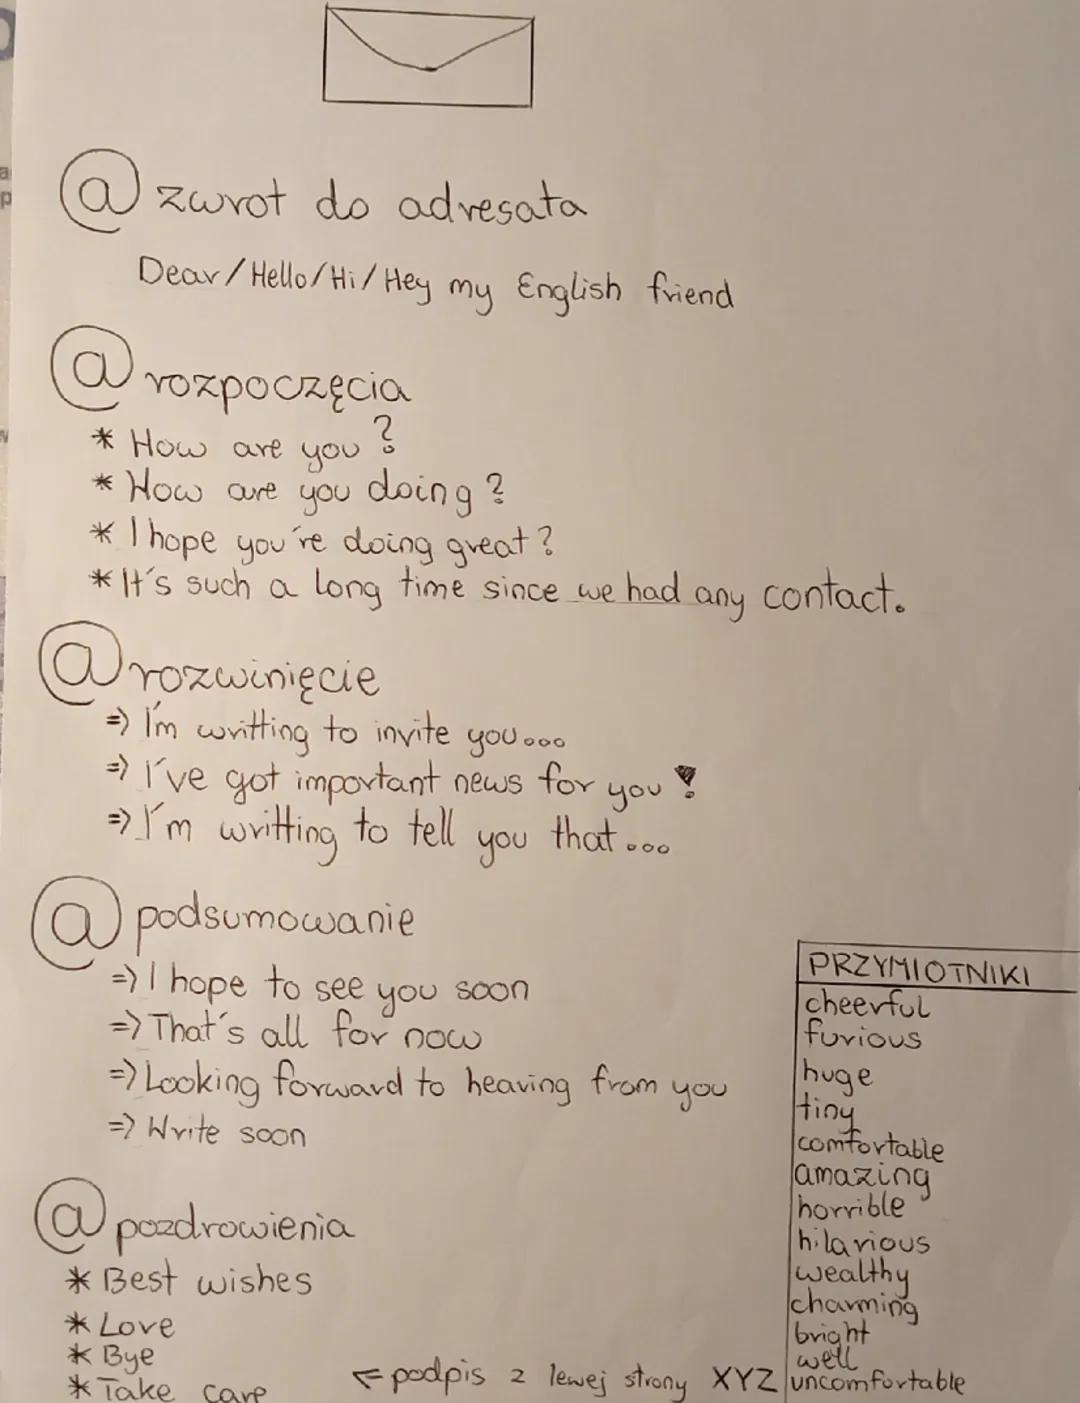 @ zwrot do adresata
Dear/Hello/Hi/Hey my English friend
@ rozpoczęcia
* How are you?
* How are you doing?
* I hope you're doing great?
* It's such a long time since we had any contact.
@ rozwinięcie
=> I'm writting to invite you...
=> I've got important news for you!
=> I'm writting to tell you that...
@ podsumowanie
=> I hope to see you soon
=> That's all for now
=> Looking forward to hearing from you
=> Write soon
@ pozdrowienia
* Best wishes
* Love
* Bye
* Take care
<= podpis z lewej strony XYZ
PRZYMIOTNIKI
cheerful
furious
huge
tiny
comfortable
amazing
horrible
hilarious
wealthy
charming
bright
well
uncomfortable